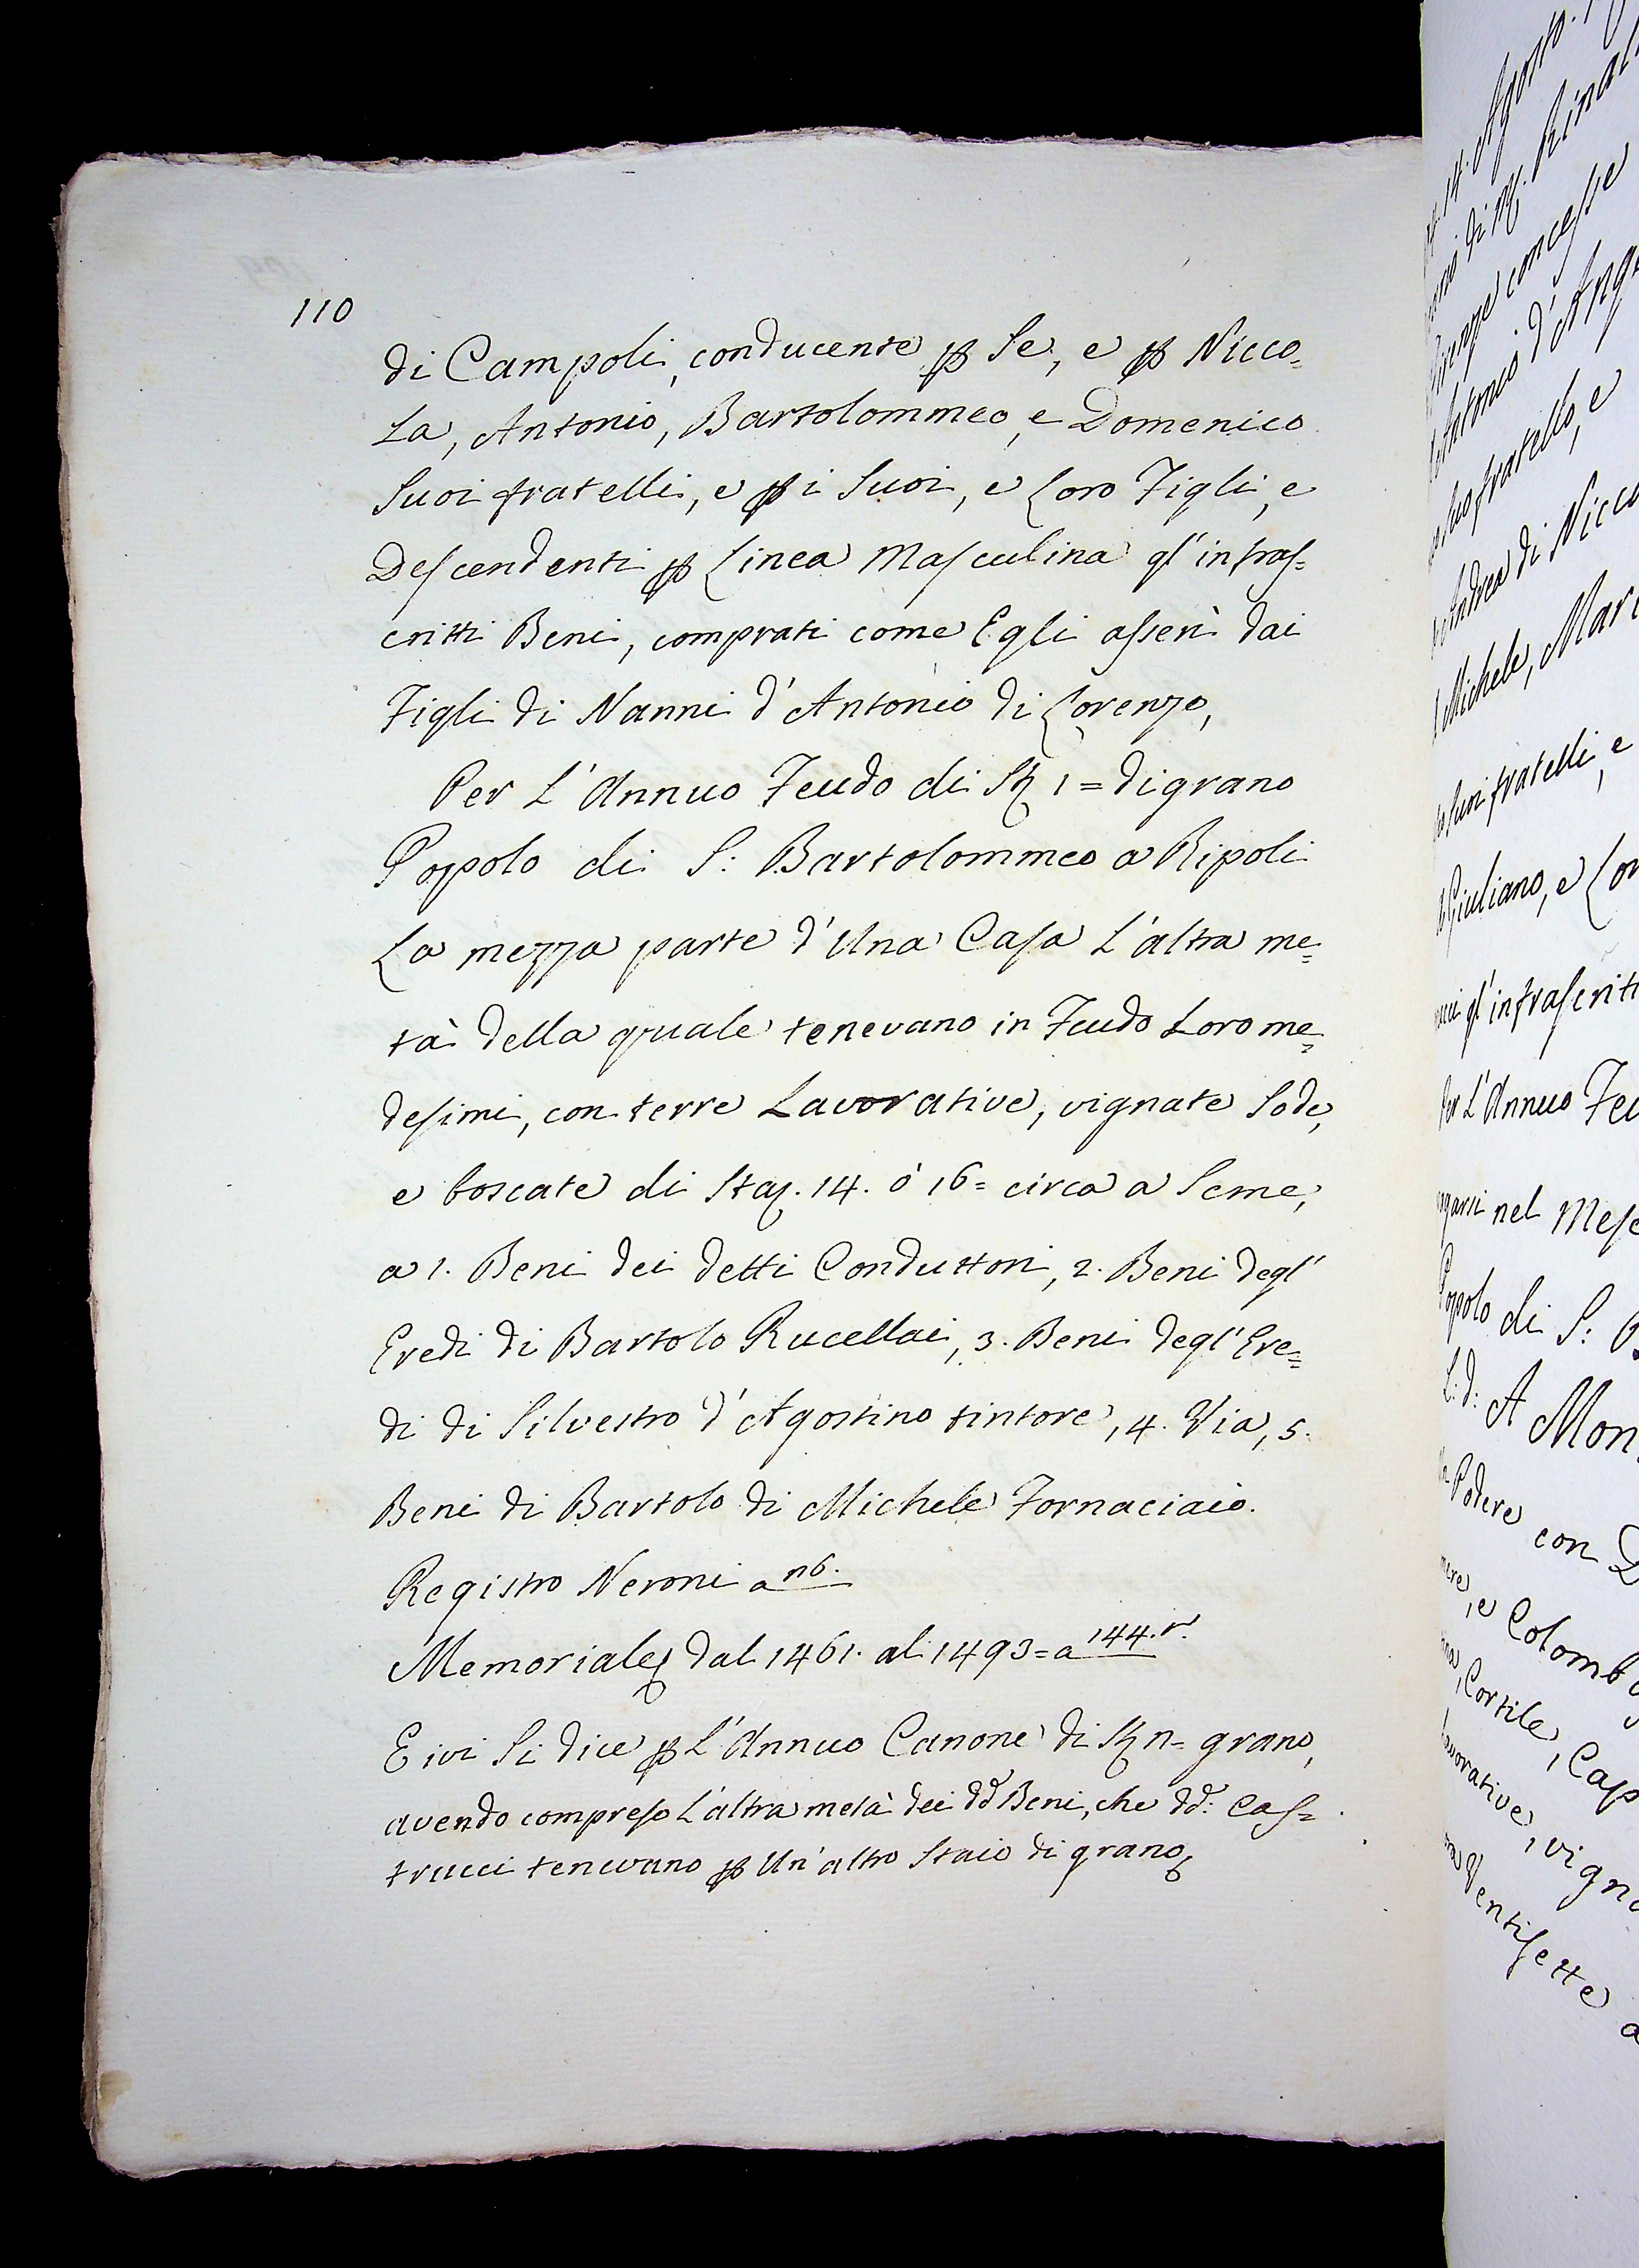 110
di Campoli, conducente p Se, e p Nicco=
la, Antonio, Bartolommeo, e Domenico
Suoi fratelli, e p i Suoi, e Loro Figli, e
Descendenti p Linea Masculina gl'infras=
critti Beni, comprati come Egli asserì dai
Figli di Nanni d'Antonio di Lorenzo,
Per L'Annuo Feudo di 1= di grano
Popolo di S: Bartolommeo a Ripoli
La mezza parte d'Una Casa L'altra me=
tà della quale tenevano in Feudo Loro me=
desimi, con terre Lavorative, vignate Sode,
e boscate di Staj. 14. ò 16= circa a Seme,
a 1. Beni dei detti Conduttori, 2. Beni degl'
Eredi di Bartolo Rucellai, 3. Beni degl'Ere=
di di Silvestro d'Agostino tintore, 4. Via, 5.
Beni di Bartolo di Michele Fornaciaio.
Registro Neroni a n6.
Memoriale dal 1461. al 1493= a 144.r.
E ivi Si dice p L'Annuo Canone di n= grano,
avendo compreso L'altra metà dei dd Beni, che dd: Cas=
trucci tenevano p Un'altro Staio di grano
14. Agosto.
di M. Rinal
concesse
Antonio d'Ang
suo fratello, e
Andrea di Nicco
Michele, Mari
Suoi fratelli, e
Giuliano, e Lor
gl'infrascritt
Per L'Annuo Feu
nel Mese
Popolo di S: B
L: d: A Mon
Podere con
e Colomb
Cortile, Cap
Lavorative, vign
Ventisette a